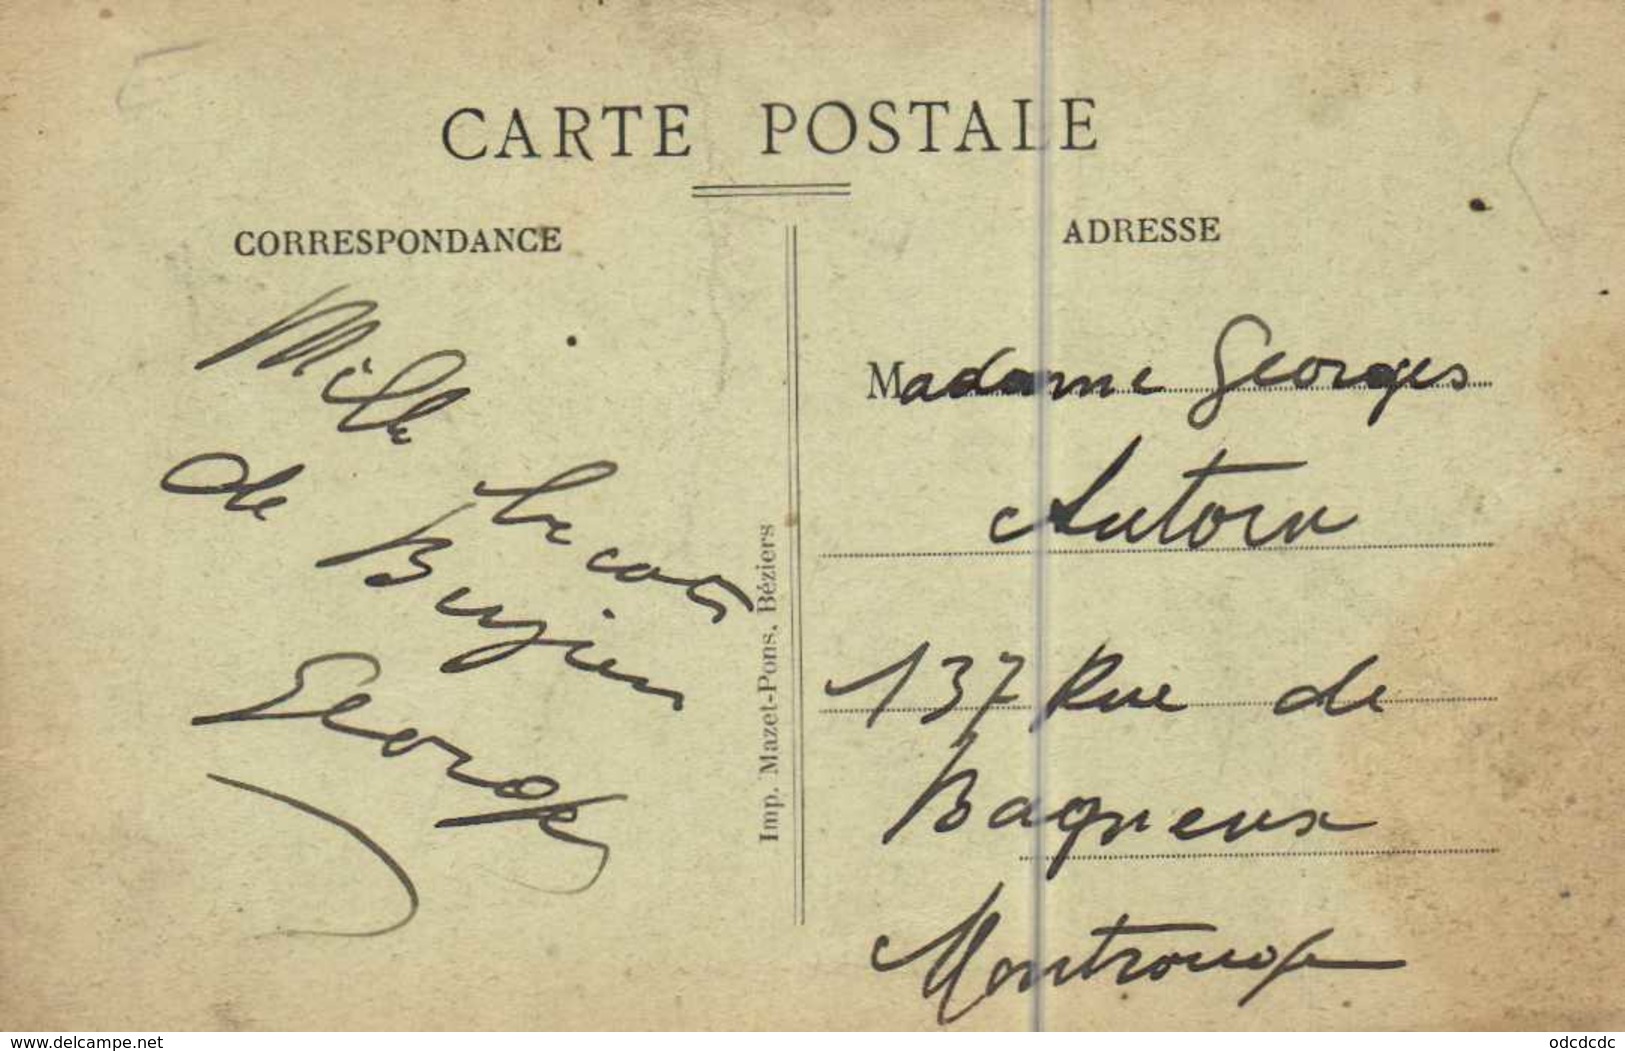 CARTE POSTALE
CORRESPONDANCE
Mille
de Bézier
Georges
Imp. Mazet-Pons, Béziers
ADRESSE
Madame Georges
137 Rue de
Bagneux
Montrouge
www.delcampe.net
odcdcdc